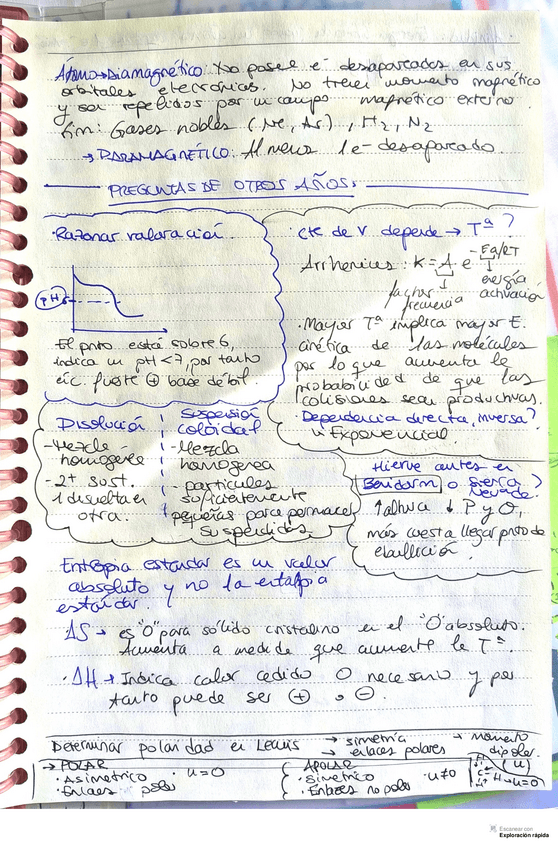 Átomo → Diamagnético: No posee e⁻ desapareados en sus
orbitales electrónicos. No tienen momento magnético
y son repelidos por un campo magnético externo.
Ejm: Gases nobles (Ne, Ar), H₂, N₂
→ PARAMAGNÉTICO: Al menos 1e⁻ desapareado.
PREGUNTAS DE OTROS AÑOS:
· Razonar valoración.
PH
El pnto está sobre 6,
indica un pH < 7, por tanto
ác. fuerte ⊕ base débil.
· Cte de v depende → Tª?
Arrhenius: K = A · e^-Ea/RT
factor
frecuencia
energía
activación
· Mayor Tª implica mayor E.
cinética de las moléculas
por lo que aumenta la
probabilidad de que las
colisiones sean productivas.
Dependencia directa, inversa?
Exponencial.
Disolución
- Mezcla
homogénea
- 2+ sust.
1 disuelta en
otra.
Suspensión
coloidal
- Mezcla
homogenea
- particulas
suficientemente
pequeñas para permanecer
suspendidas
Hierve antes en
Benidorm o Sierra
Nevada?
↑ altura ↓ P y O₂
más cuesta llegar pnto de
ebullición.
Entropia estándar es un valor
absoluto y no la entalpia
estándar.
ΔS → es "0" para sólido cristalino en el "0" absoluto.
Aumenta a medida que aumente la Tª.
· ΔH → Indica calor cedido o necesario y por
tanto puede ser ⊕ o ⊖.
Determinar polaridad en Lewis → simetría
→ enlaces polares
→ momento
dipolar
(u)
→ POLAR
· Asimetrico · u=0
· Enlaces polar
APOLAR
· Simetrico · u≠0
· Enlaces no polar
H
C - H → u=0
H
Escanear con
Exploración rápida